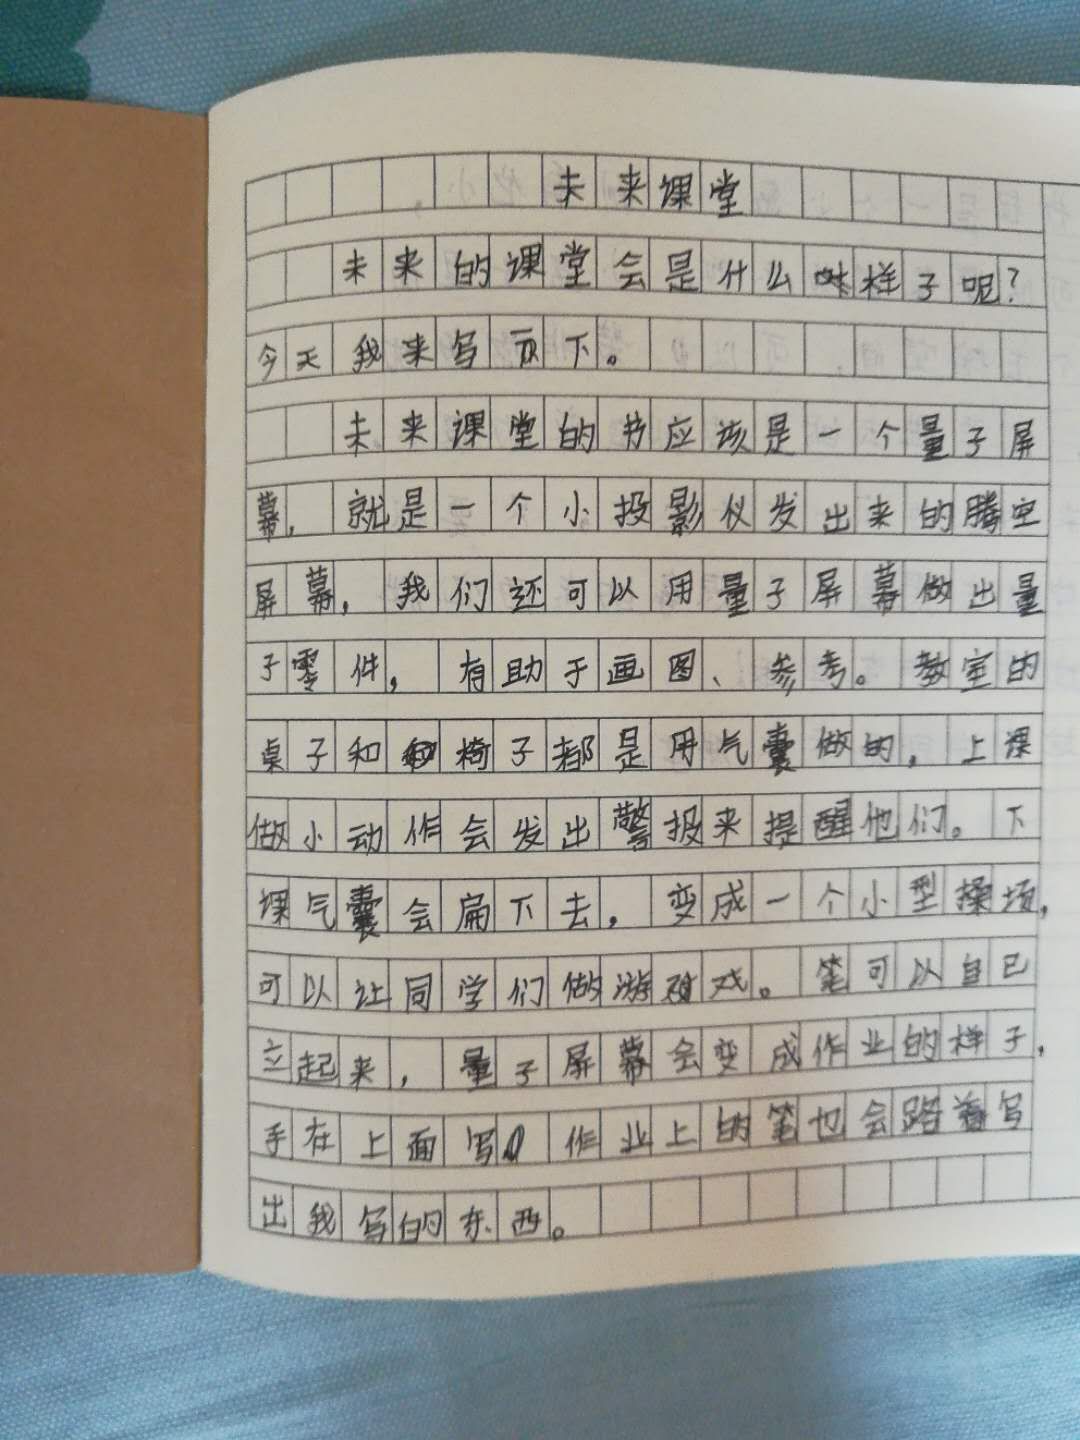 未来课堂
未来的课堂会是什么样子呢?
今天我来写一下。
未来课堂的书应该是一个量子屏
幕,就是一个小投影仪发出来的腾空
屏幕,我们还可以用量子屏幕做出量
子零件,有助于画图、参考。教室的
桌子和椅子都是用气囊做的,上课
做小动作会发出警报来提醒他们。下
课气囊会扁下去,变成一个小型操场,
可以让同学们做游戏。笔可以自己
立起来,量子屏幕会变成作业的样子,
手在上面写,作业上的笔也会跟着写
出我写的东西。